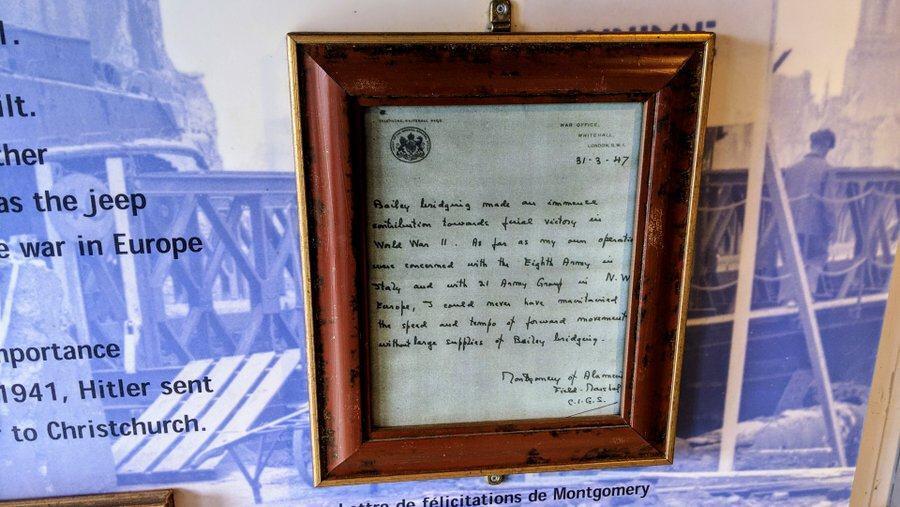 1.
ilt.
ther
as the jeep
e war in Europe
mportance
1941, Hitler sent
to Christchurch.
WAR OFFICE,
WHITEHALL,
LONDON, S.W.1.
31-3-47
Bailey bridging made an immense
contribution towards final victory in
World War II. As far as my own operatio
were concerned with the Eighth Army in
Italy and with 21 Army Group in N.W
Europe, I could never have maintained
the speed and tempo of forward movement
without large supplies of Bailey bridging.
Montgomery of Alamein
Field-Marshal
C.I.G.S.
Lettre de félicitations de Montgomery